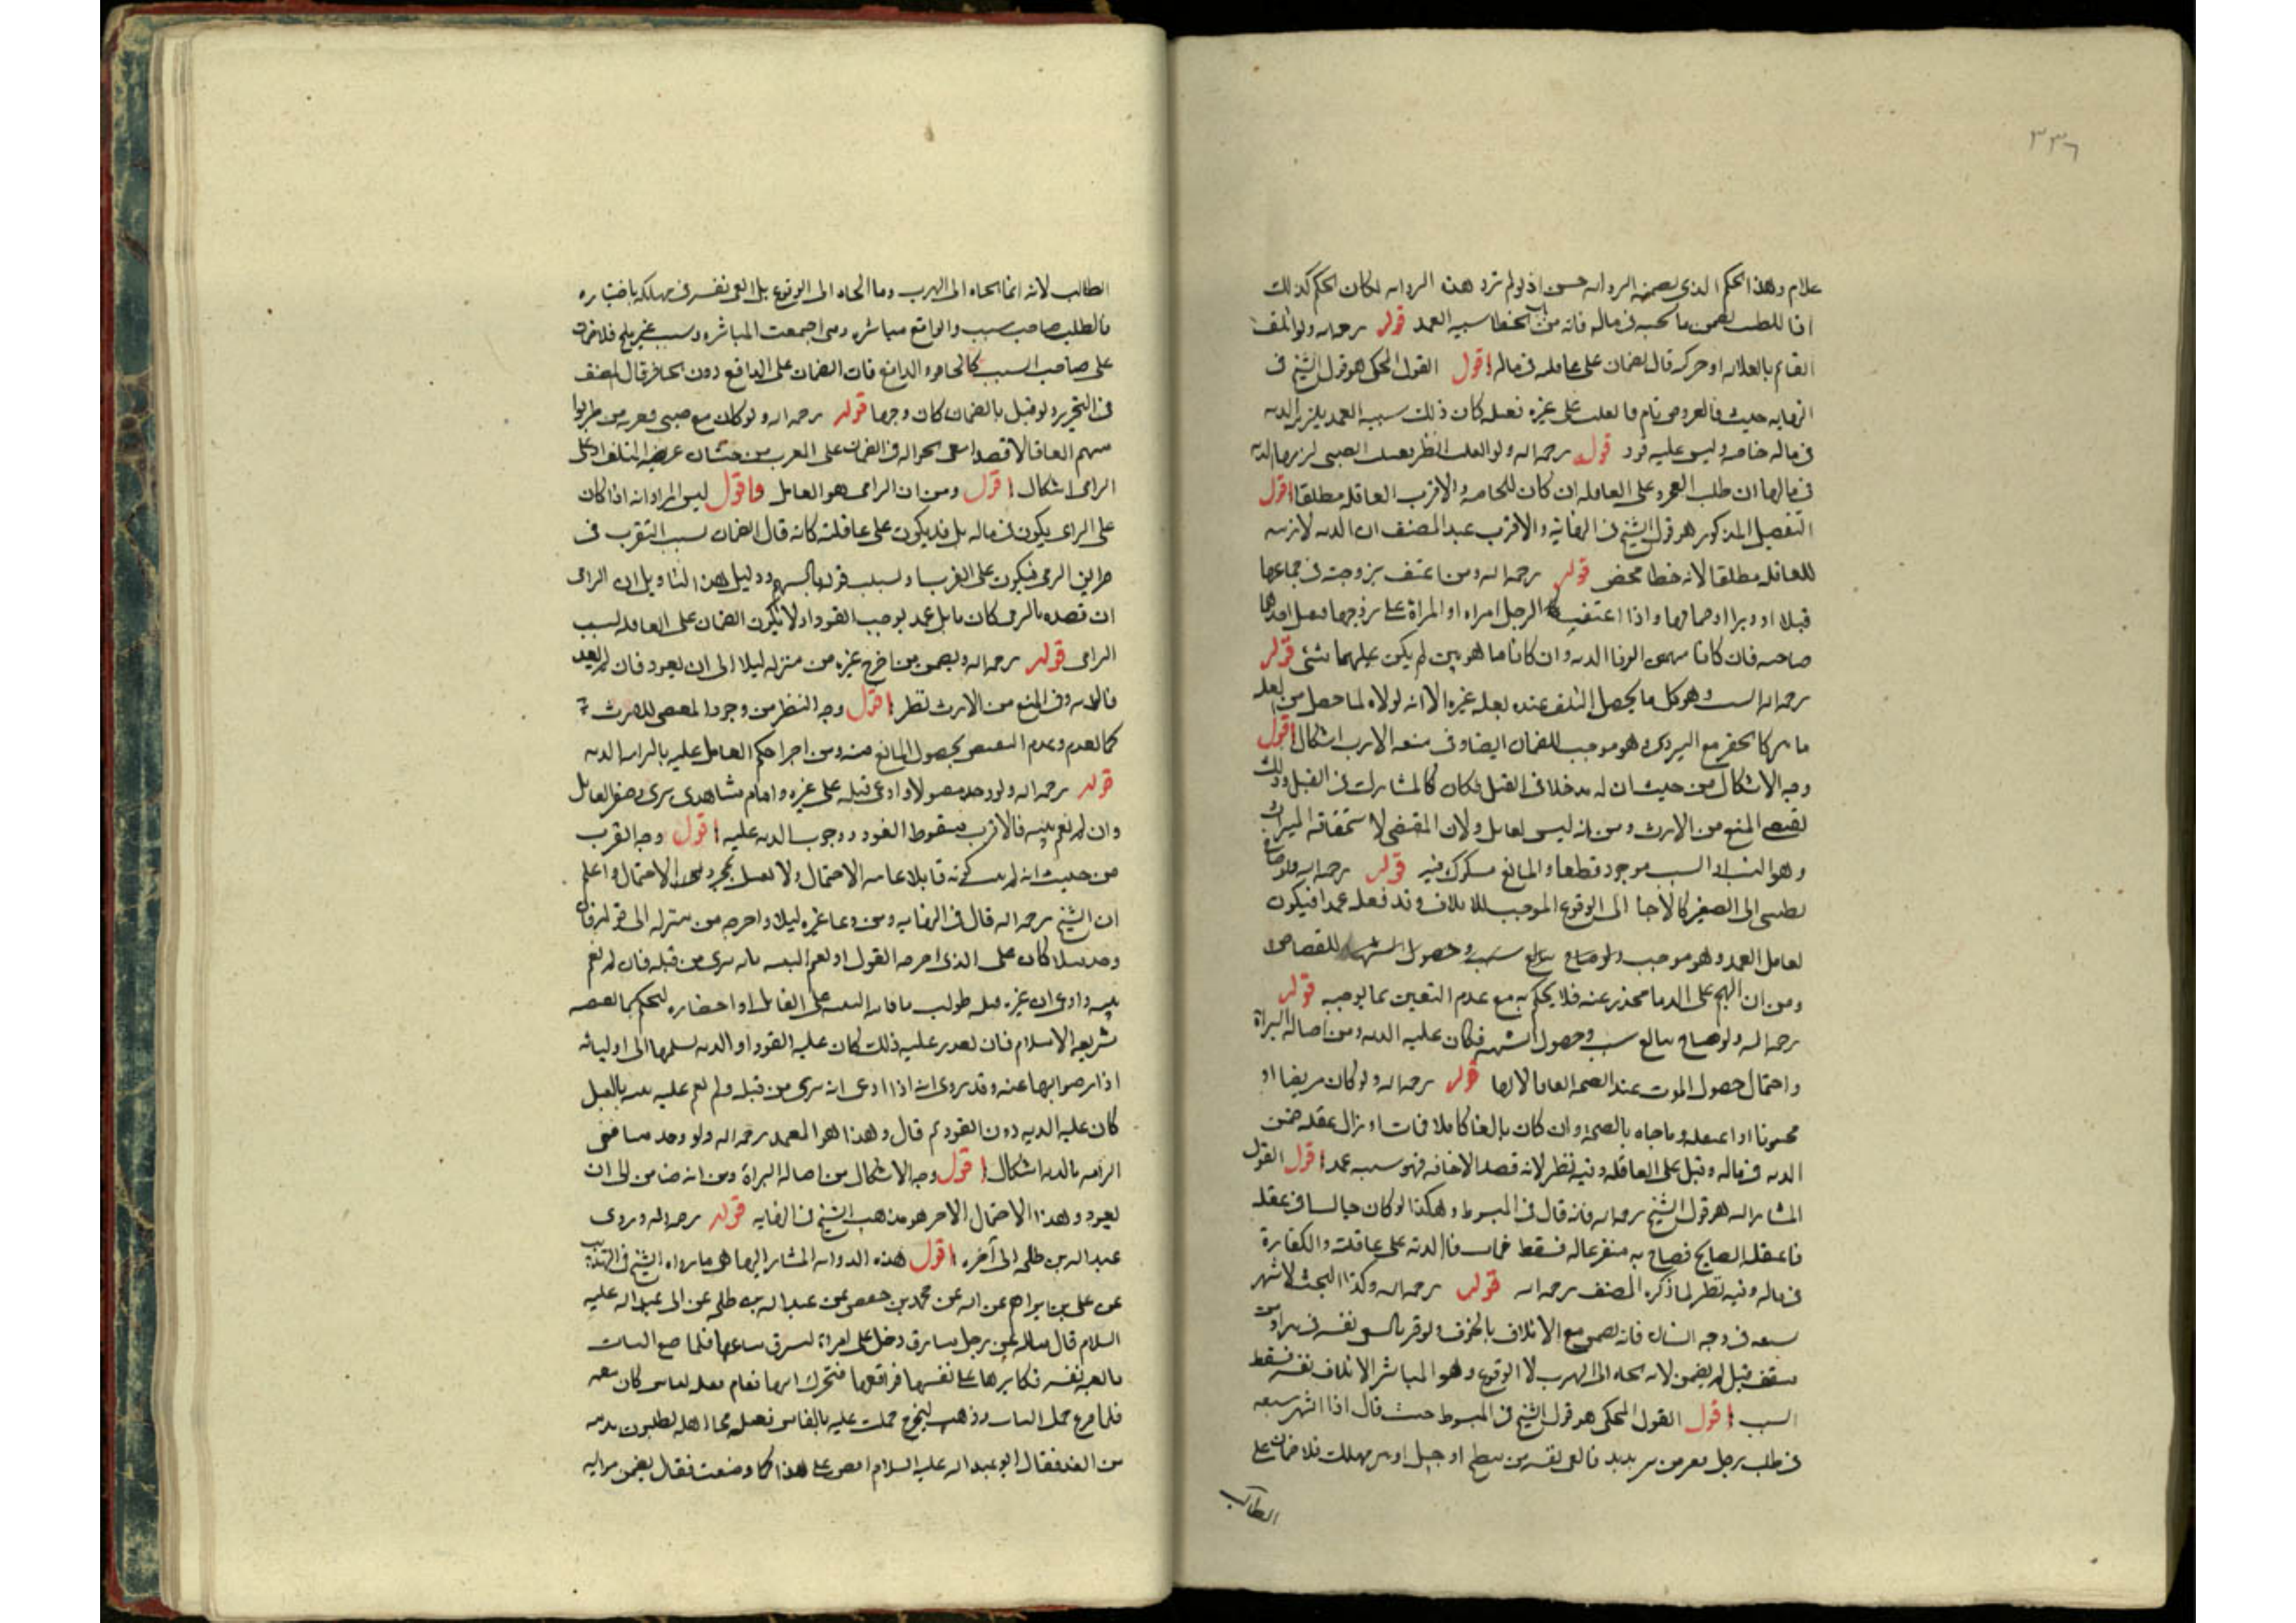 ٣٣٦
علام وهذا الحكم الذي تضمنه الرواية حسن اذ لو لم ترد هذه الرواية لكان الحكم كذلك
للطبيب يضمن ما يجنيه في ماله فانه من الخطا شبيه العمد قوله رحمه الله ولو اتلف
القائم بانقلابه او حركته قال الضمان على عاقله في ماله اقول القول المحكي هو قول الشيخ في
النهاية حيث قال ومن نام فانقلب على غيره فقتله كان ذلك شبيه العمد يلزمه الدية
في ماله خاصة وليس عليه قود قوله رحمه الله ولو انقلبت الظئر فقتلت الصبي لزمها الدية
في مالها ان طلبت الفخر وعلى العاقلة ان كان للحاجة والاقرب العاقلة مطلقا اقول
التفصيل المذكور هو قول الشيخ في النهاية والاقرب عند المصنف ان الدية لازمة
للعاقلة مطلقا لانه خطا محض قوله رحمه الله ومن اعنف بزوجته في جماعها
قبلا او دبرا او ضما واذا اعنف الرجل امراه او المراة على زوجها فقتل احدهما
صاحبه فان كانا متهمين الزما الدية وان كانا مامونين لم يكن عليهما شئ قوله
رحمه الله السبب وهو كل ما يحصل التلف عنده بعلة غيره الا انه لولاه لما حصل من العلة
تاثير كالحفر مع التردي وهو موجب للضمان ايضا وفي منعه الارث اشكال اقول
وجه الاشكال من حيث ان له مدخلا في القتل فكان كالمشارك في القتل وذلك
يقتضي المنع من الارث ومن انه ليس بقاتل ولان المقتضي لاستحقاقه الميراث
وهو النسب او السبب موجود قطعا والمانع مشكوك فيه قوله رحمه الله ولو صاح
بالصغير كالالجاء الى الوقوع الموجب للاتلاف وقد فعله عمدا فيكون
لقاتل العمد وهو موجب وحصول للقصاص
ومن ان التهجم على الدما محذر عنه فلا يحكم به مع عدم التعين بما يوجبه قوله
رحمه الله ولو صاح ببالغ وحصول الشبهة فكان عليه الدية ومن اصالة البراة
واحتمال حصول الموت عند الصيحة اتفاقا لا بها قوله رحمه الله ولو كان مريضا او
مجنونا او اغتفله وفاجاه بالصيحة وان كان بالغا كاملا فمات او زال عقله ضمن
الدية في ماله وقيل على العاقلة وفيه نظر لانه قصد الاخافة فهو شبيه عمد اقول القول
المشار اليه هو قول الشيخ رحمه الله فانه قال في المبسوط وهكذا لو كان جالسا في غفلة
فاغتفله الصايح فصاح به مفزعا له فسقط فمات فالدية على عاقلته والكفارة
في ماله وفيه نظر لما ذكره المصنف رحمه الله قوله رحمه الله وكذا البحث لو شهر
سيفه في وجه انسان فانه يضمن مع الاتلاف بالخوف ولو فر فالقى نفسه في بئر او من
سقف قيل لم يضمن لانه الجاه الى الهرب لا الوقوع وهو المباشر لاتلاف نفسه فسقط
السبب اقول القول المحكي هو قول الشيخ في المبسوط حيث قال اذا اشهر سيفه
في طلب رجل ففر من بين يديه فالقى نفسه من سطح او جبل او بئر فهلك فلا ضمان على
الطالب
الطالب لانه انما الجاه الى الهرب وما الجاه الى الوقوع بل القى نفسه في مهلكه باختياره
فالطالب صاحب سبب والواقع مباشر ومتى اجتمعت المباشرة وسبب غير ملجئ فلا ضمان
على صاحب السبب كالحافر والدافع فان الضمان على الدافع دون الحافر قال المصنف
في التحرير ولو قيل بالضمان كان وجها قوله رحمه الله ولو كان مع صبي فقربه من طريق
سهم اتفاقا لا قصدا ففي احواله الضمان على المقرب من حيث انه عرضه للتلف او على
الرامي اشكال اقول ومن ان الرامي هو القاتل واقول ليس المراد انه اذا كان
على الرامي يكون في ماله بل قد يكون على عاقلته كانه قال الضمان بسبب التقرب في
طريق الرمي فيكون على المقرب او بسبب قتله بالسهم ودليل هذا التاويل ان الرامي
ان قصده بالرمي كان قاتل عمد يوجب القود او لا فيكون الضمان على العاقلة لسبب
الرامي قوله رحمه الله ويضمن من اخرج غيره من منزله ليلا الى ان يعود فان لم يعد
فالدية وفي المنع من الارث نظر اقول وجه النظر من وجود المقتضي للارث
كالعدم وعدم التخصيص بحصول المانع منه ومن اجرا حكم القاتل عليه بالزامه الدية
قوله رحمه الله ولو وجد مقتولا وادعى قتله على غيره واقام شاهدي برئ وضمن القاتل
وان لم يقم بينة فالاقرب سقوط القود ووجوب الدية عليه اقول وجه القرب
من حيث انه لم يثبت كونه قاتلا غايته الاحتمال ولا يقتل بمجرد الاحتمال واعلم
ان الشيخ رحمه الله قال في النهاية ومن دعا غيره ليلا واخرجه من منزله الى قوله فان
وجد قتيلا كان على الذي اخرجه القود او يقيم البينة بانه برئ من قتله فان لم يقم
بينة وادعى ان غيره قتله طولب باقامة البينة على القاتل او احضاره ليحكم بما تقتضيه
شريعة الاسلام فان تعذر عليه ذلك كان عليه القود او الدية يسلمها الى اوليائه
اذا رضوا بها عنه وقد روي انه اذا ادعى انه برئ من قتله ولم تقم عليه بينة بالقتل
كان عليه الدية دون القود ثم قال وهذا هو المعتمد رحمه الله ولو وجد ميتا ففي
الزامه بالدية اشكال اقول وجه الاشكال من اصالة البراة ومن انه ضامن الى ان
يعود وهذا الاحتمال الاخر هو مذهب الشيخ في النهاية قوله رحمه الله وروى
عبد الله بن طلحة الى آخره اقول هذه الرواية المشار اليها هي ما رواه الشيخ في التهذيب
عن علي بن ابراهيم عن ابيه عن محمد بن حفص عن عبد الله بن طلحة عن ابي عبد الله عليه
السلام قال سالته عن رجل سارق دخل على امراة ليسرق متاعها فلما جمع الثياب
تابعته نفسه فكابرها على نفسها فواقعها فتحرك ابنها فقام فقتله بفاس كان معه
فلما فرغ حمل الثياب وذهب ليخرج حملت عليه بالفاس فقتلته فجاء اهله يطلبون بدمه
من الغد فقال ابو عبد الله عليه السلام اقض على هذا كما وصفت فقال يضمن مواليه